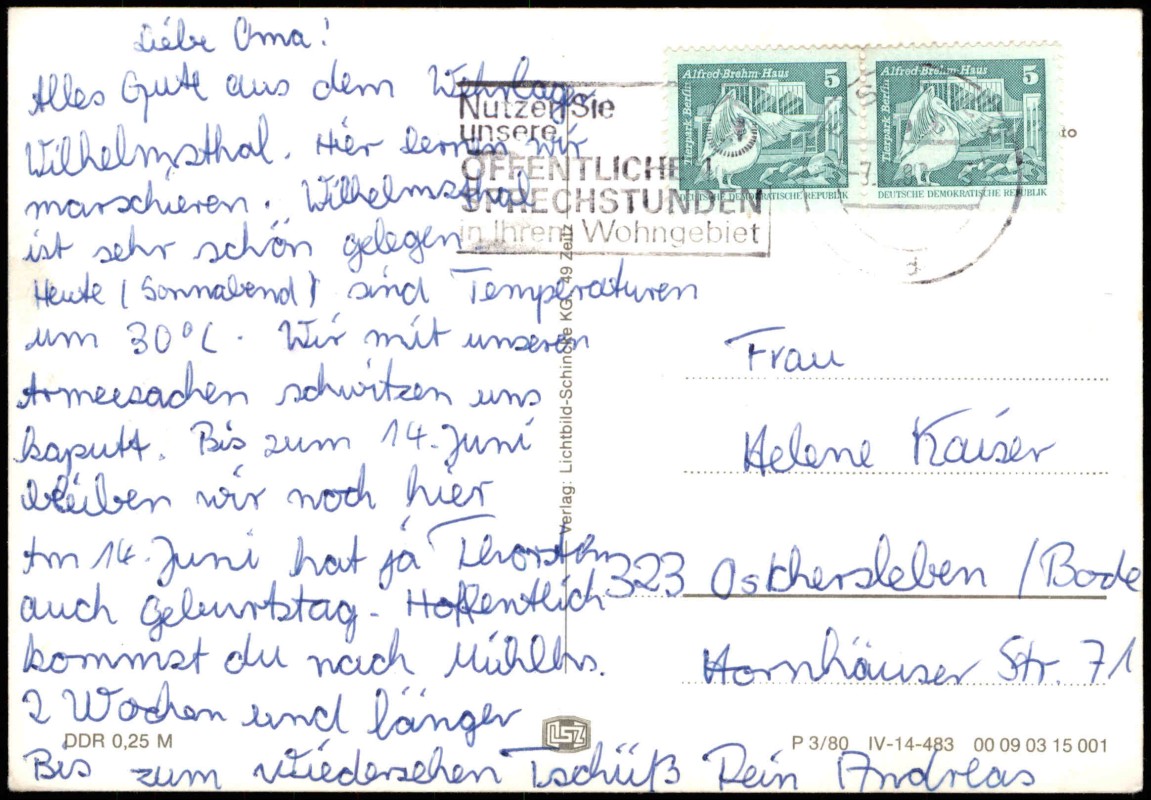 Liebe Oma!
Alles Gute aus dem Wehrlager
Wilhelmsthal. Hier lernen wir
marschieren. Wilhelmsthal
ist sehr schön gelegen
Heute (Sonnabend) sind Temperaturen
um 30°C. Wir mit unseren
Armeesachen schwitzen uns
kaputt. Bis zum 14. Juni
bleiben wir noch hier
Am 14. Juni hat ja Thorsten
auch Geburtstag. Hoffentlich
kommst du nach Mühlhs.
2 Wochen und länger
Bis zum Wiedersehen Tschüß Dein Andreas
Nutzen Sie
unsere
ÖFFENTLICHEN
SPRECHSTUNDEN
in Ihrem Wohngebiet
Alfred-Brehm-Haus 5
Tierpark Berlin
DEUTSCHE DEMOKRATISCHE REPUBLIK
Alfred-Brehm-Haus 5
Tierpark Berlin
DEUTSCHE DEMOKRATISCHE REPUBLIK
Frau
Helene Kaiser
323 Oschersleben /Bode
Hornhäuser Str. 71
Verlag: Lichtbild-Schincke KG, 49 Zeitz
DDR 0,25 M
LSZ
P 3/80 IV-14-483 00 09 03 15 001